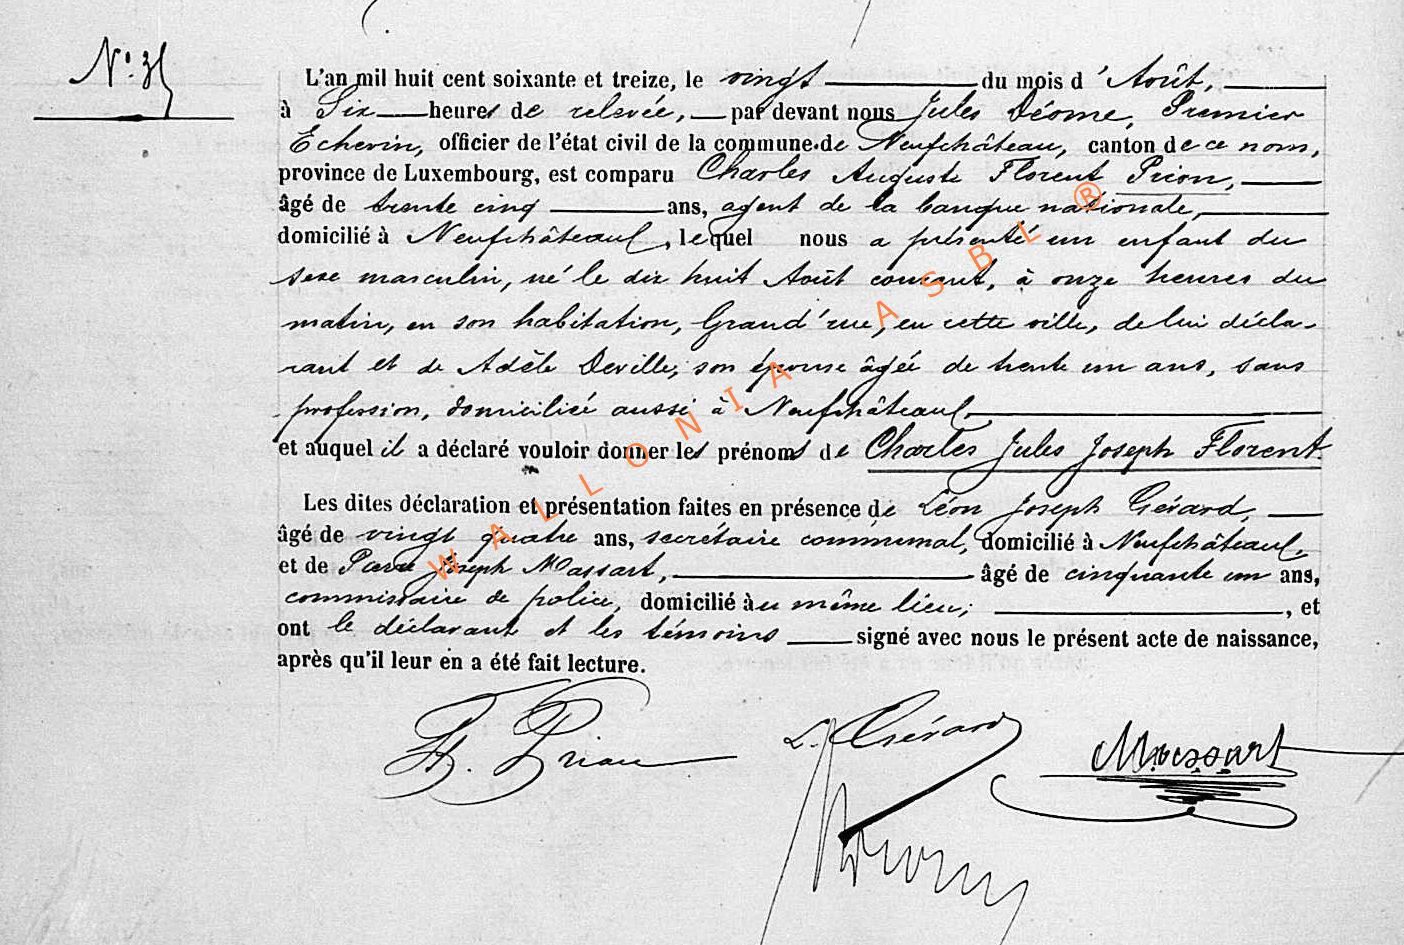 N°. 31
L'an mil huit cent soixante et treize, le vingt du mois d'Août,
à Six heures de relevée, par devant nous Jules Déome, Premier
Echevin, officier de l'état civil de la commune de Neufchâteau, canton de ce nom,
province de Luxembourg, est comparu Charles Auguste Florent Prion,
âgé de trente cinq ans, agent de la banque nationale,
domicilié à Neufchâteau, lequel nous a présenté un enfant du
sexe masculin, né le dix huit Août courant, à onze heures du
matin, en son habitation, Grand'rue, en cette ville, de lui décla-
rant et de Adèle Deville, son épouse âgée de trente un ans, sans
profession, domiciliée aussi à Neufchâteau,
et auquel il a déclaré vouloir donner les prénoms de Charles Jules Joseph Florent.
Les dites déclaration et présentation faites en présence de Léon Joseph Gérard,
âgé de vingt quatre ans, secrétaire communal, domicilié à Neufchâteau,
et de Pierre Joseph Massart, âgé de cinquante un ans,
commissaire de police, domicilié au même lieu; , et
ont le déclarant et les témoins signé avec nous le présent acte de naissance,
après qu'il leur en a été fait lecture.
Prion
L. Gérard
Massart
WALLONIA ASBL ®